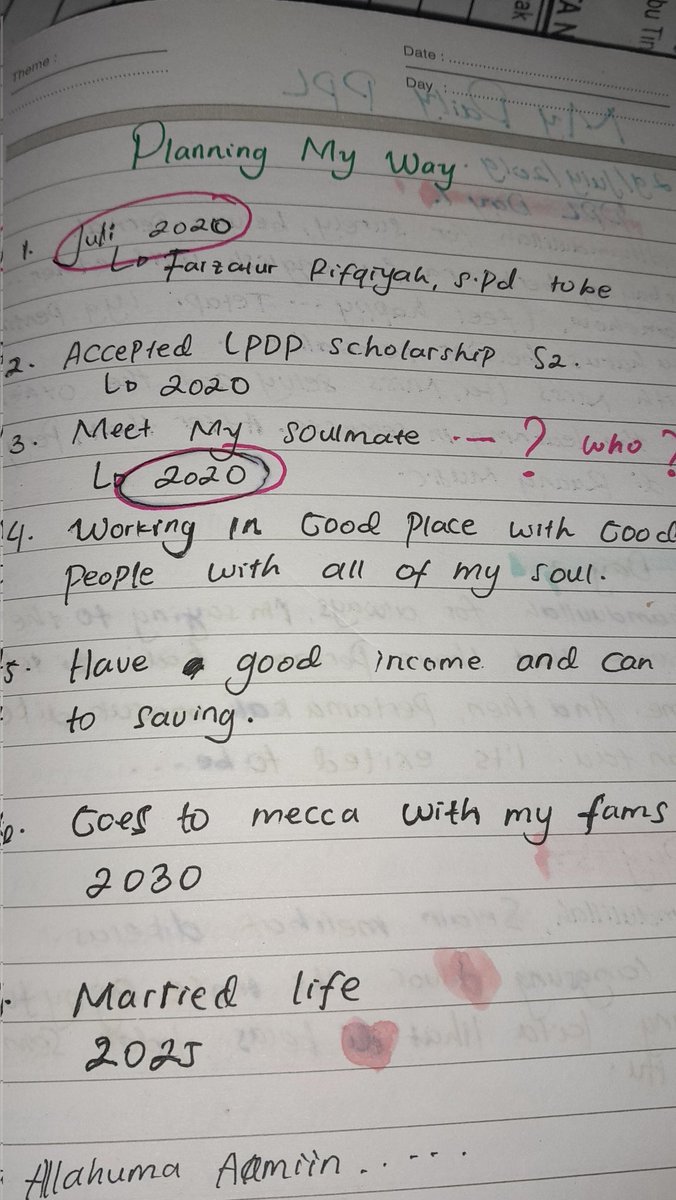 ak
AN
bu Tir
Theme :
Date :
Day :
Planning My Way
1. Juli 2020
Farzatur Rifqiyah, S.Pd to be
2. Accepted LPDP Scholarship S2.
2020
3. Meet My soulmate ..— ? who ?
2020
4. Working in Good place with Good
people with all of my soul.
5. Have good income and can
to saving.
Goes to mecca with my fams
2030
Married life
2025
Allahuma Aamiin . . - - - .